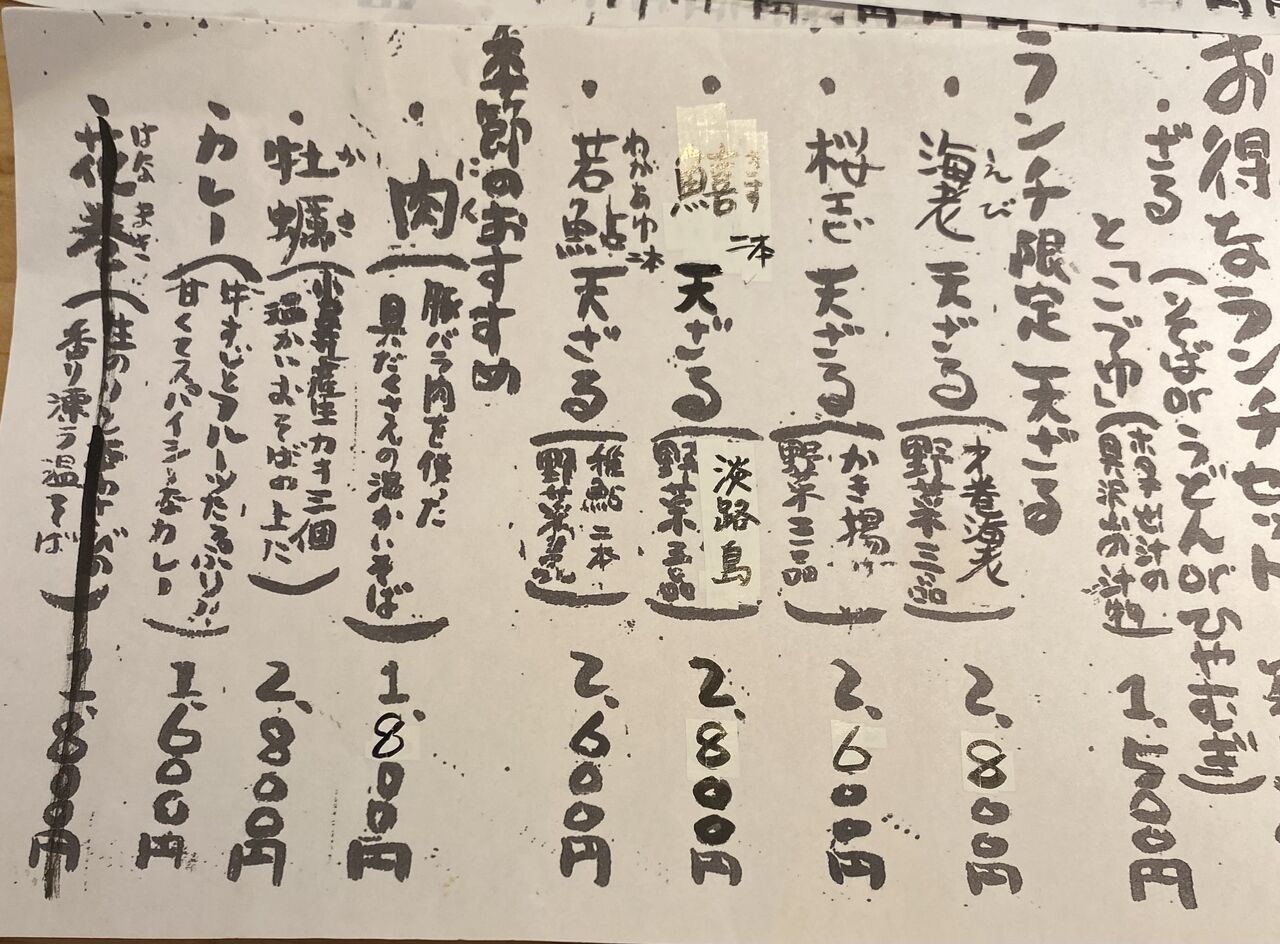 お得なランチセット
・ざる(そばorうどんorひやむぎ)
と「こづゆ」(ホタテ出汁の
具沢山の汁物) 1,500円
ランチ限定 天ざる
・海老天ざる(才巻海老
野菜三品) 2,800円
えび
・桜エビ天ざる(かき揚げ
野菜三品) 2,600円
・鱚二本天ざる(淡路島
野菜三品) 2,800円
きす
・若鮎二本天ざる(稚鮎二本
野菜三品) 2,600円
わかあゆ
季節のおすすめ
・肉(豚バラ肉を使った
具だくさんの温かいそば) 1,800円
にく
・牡蠣(産カキ三個
温かいおそばの上に) 2,800円
かき
・カレー(牛すじとフルーツたっぷり!!
甘くてスパイシーなカレー) 1,600円
・花巻(生のりとわさびの
香り漂う温そば) 1,800円
はなまき